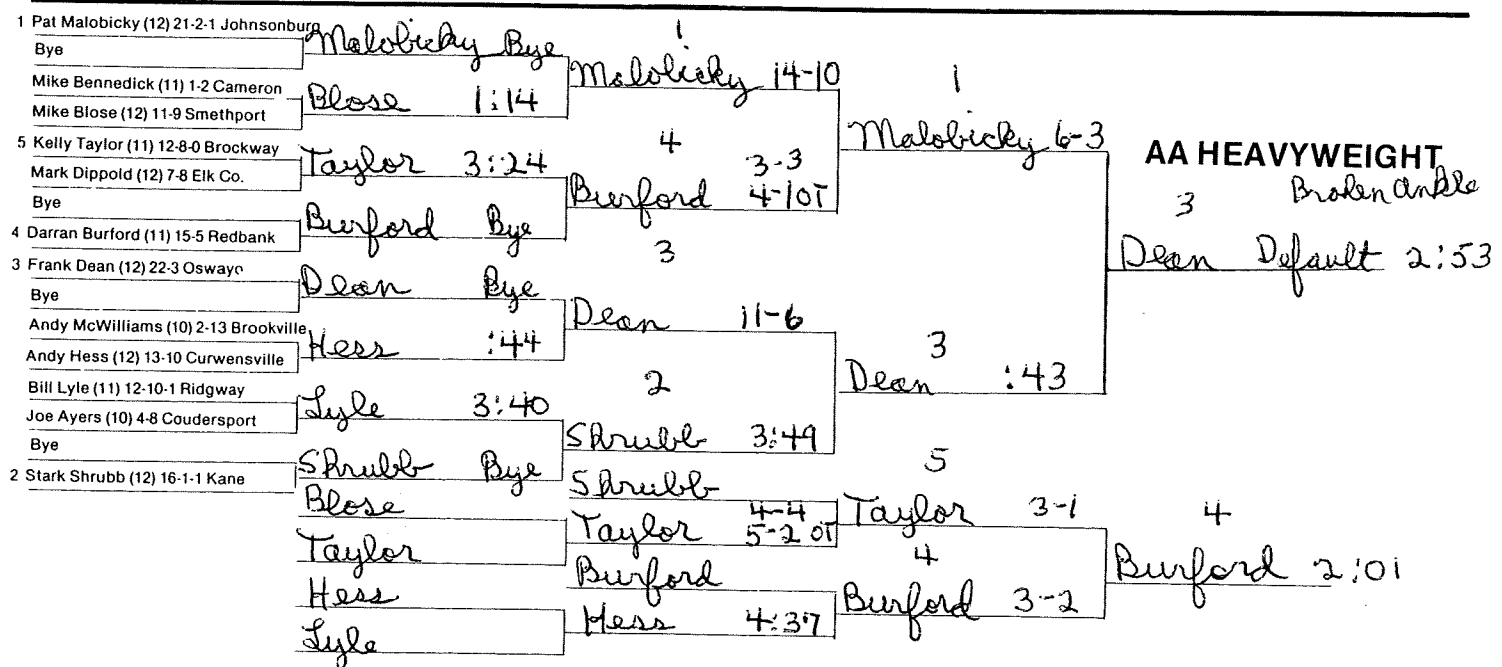 1 Pat Malobicky (12) 21-2-1 Johnsonburg
Bye
Mike Bennedick (11) 1-2 Cameron
Mike Blose (12) 11-9 Smethport
5 Kelly Taylor (11) 12-8-0 Brockway
Mark Dippold (12) 7-8 Elk Co.
Bye
4 Darran Burford (11) 15-5 Redbank
3 Frank Dean (12) 22-3 Oswayo
Bye
Andy McWilliams (10) 2-13 Brookville
Andy Hess (12) 13-10 Curwensville
Bill Lyle (11) 12-10-1 Ridgway
Joe Ayers (10) 4-8 Coudersport
Bye
2 Stark Shrubb (12) 16-1-1 Kane
Malobicky Bye
Blose 1:14
Taylor 3:24
Burford Bye
Dean Bye
Hess :44
Lyle 3:40
Shrubb Bye
Blose
Taylor
Hess
Lyle
1
Malobicky 14-10
4
3-3
Burford 4-1 OT
3
Dean 11-6
2
Shrubb 3:49
Shrubb
4-4
Taylor 5-2 OT
Burford
Hess 4:37
1
Malobicky 6-3
3
Dean :43
5
Taylor 3-1
4
Burford 3-2
AA HEAVYWEIGHT
Broken Ankle
3
Dean Default 2:53
4
Burford 2:01